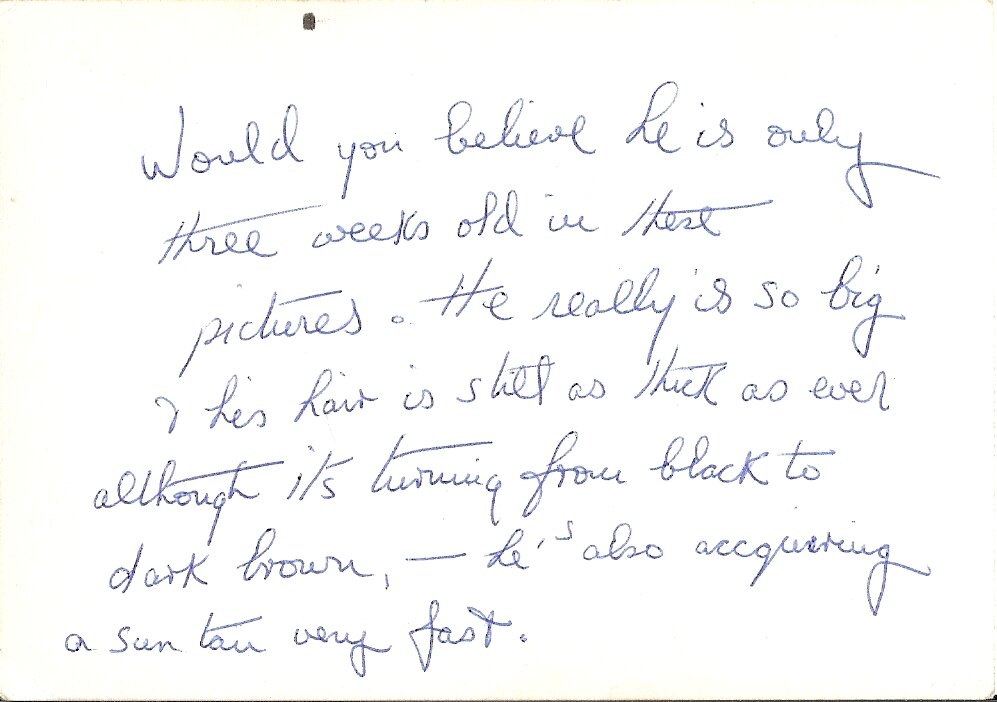 Would you believe he is only
three weeks old in these
pictures. He really is so big
& his hair is still as thick as ever
although it's turning from black to
dark brown, — he's also accquiring
a sun tan very fast.